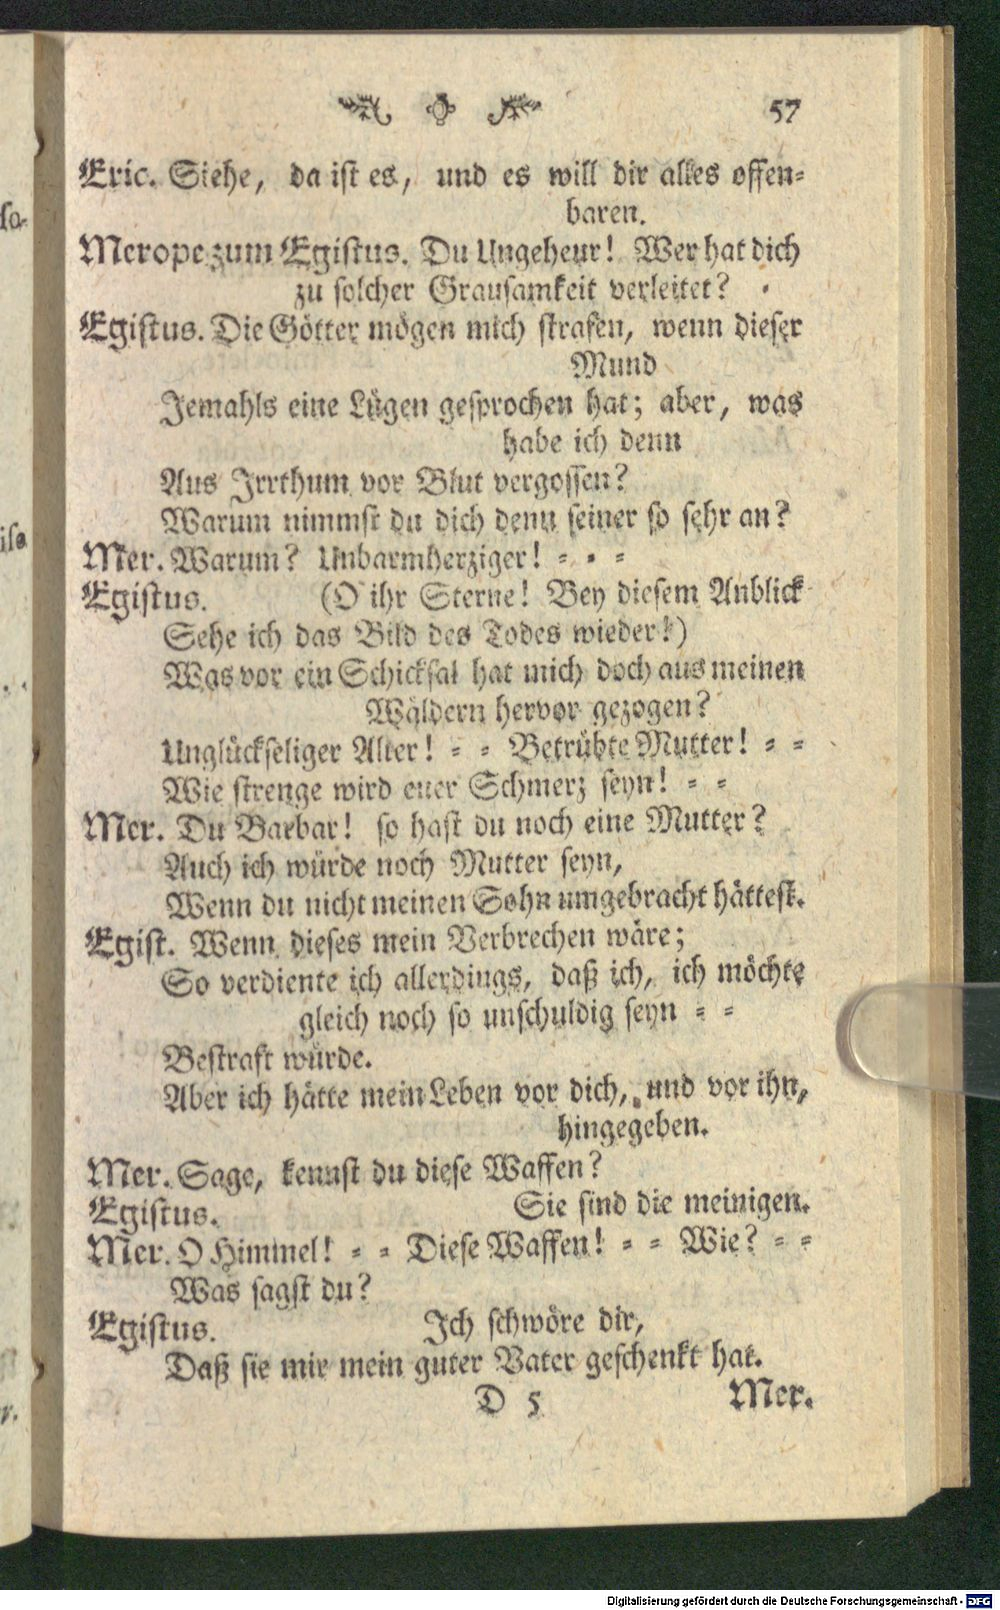 57
Eric. Siehe, da ist es, und es will dir alles offen-
baren.
Merope zum Egistus. Du Ungeheur! Wer hat dich
zu solcher Grausamkeit verleitet?
Egistus. Die Götter mögen mich strafen, wenn dieser
Mund
Jemahls eine Lügen gesprochen hat; aber, was
habe ich denn
Aus Irrthum vor Blut vergossen?
Warum nimmst du dich denn seiner so sehr an?
Mer. Warum? Unbarmherziger! - - -
Egistus. (O ihr Sterne! Bey diesem Anblick
Sehe ich das Bild des Todes wieder!)
Was vor ein Schicksal hat mich doch aus meinen
Wäldern hervor gezogen?
Unglückseliger Alter! - - Betrübte Mutter! - -
Wie strenge wird euer Schmerz seyn! - -
Mer. Du Barbar! so hast du noch eine Mutter?
Auch ich würde noch Mutter seyn,
Wenn du nicht meinen Sohn umgebracht hättest.
Egist. Wenn dieses mein Verbrechen wäre;
So verdiente ich allerdings, daß ich, ich möchte
gleich noch so unschuldig seyn - -
Bestraft würde.
Aber ich hätte mein Leben vor dich, und vor ihn,
hingegeben.
Mer. Sage, kennst du diese Waffen?
Egistus. Sie sind die meinigen.
Mer. O Himmel! - - Diese Waffen! - - Wie? - -
Was sagst du?
Egistus. Ich schwöre dir,
Daß sie mir mein guter Vater geschenkt hat.
D 5 Mer.
Digitalisierung gefördert durch die Deutsche Forschungsgemeinschaft - DFG